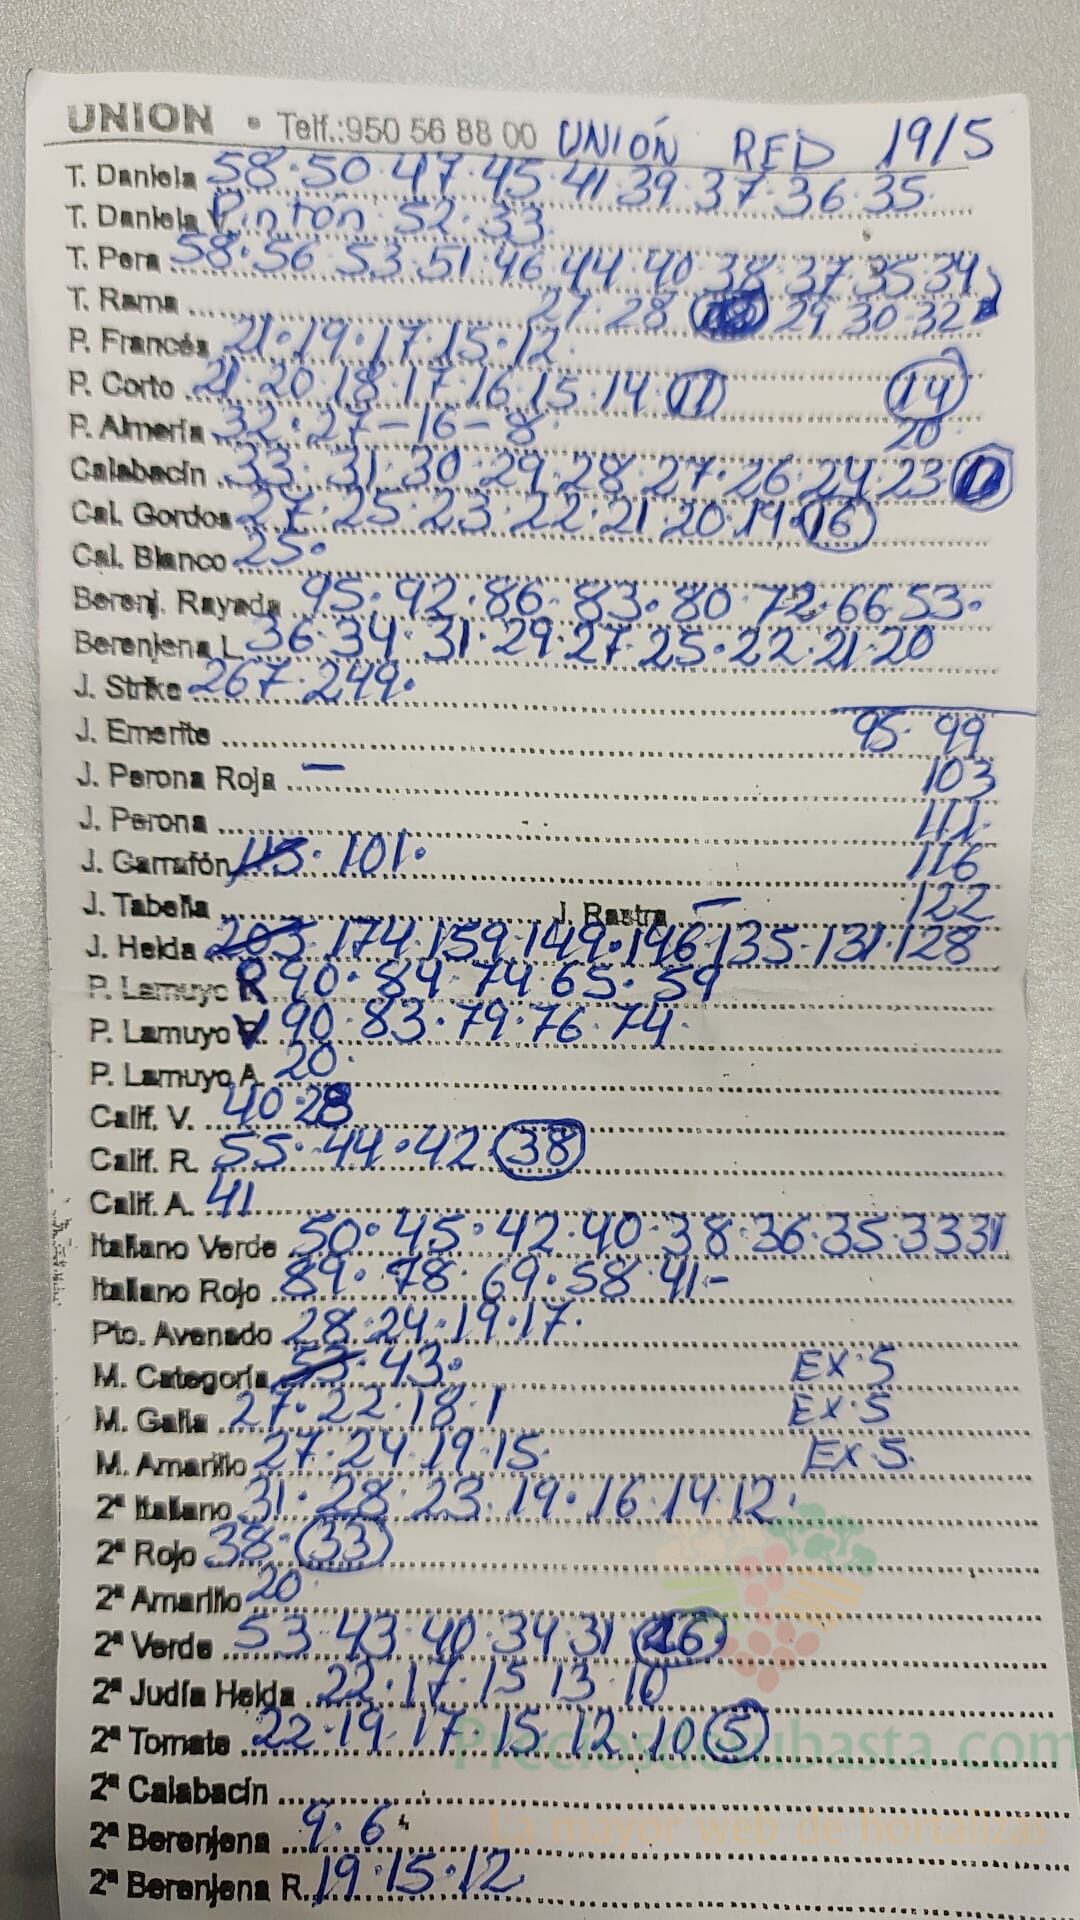 UNION • Telf.:950 56 88 00 UNIÓN RED 19/5
T. Daniela 58·50·47·45·41 39·37·36·35
T. Daniela V. Pintón 52·33
T. Pera 58·56 53·51·46·44·40·38·37·35·34
T. Rama 27·28 29 30 32
P. Francés 21·19·17·15·12·
P. Corto 21·20·18·17·16·15·14 11 14
P. Almería 32·27-16-8· 20
Calabacín 33·31·30·29·28·27·26·24·23
Cal. Gordos 27·25·23·22·21·20·19·16
Cal. Blanco 25·
Berenj. Rayada 95·92·86·83·80·72·66·53·
Berenjena L. 36·34·31·29·27·25·22·21·20
J. Strike 267·249·
J. Emerite 95·99
J. Perona Roja - 103
J. Perona 111·
J. Garrafón 113· 101· 116
J. Tabella J. Rastra - 122
J. Helda 203·174·159·149·146·135·131·128
P. Lamuyo R 90·84·74·65·59
P. Lamuyo V 90·83·79·76·74·
P. Lamuyo A. 20·
Calif. V. 40·28
Calif. R. 55·44·42 38
Calif. A. 41
Italiano Verde 50·45·42·40·38·36·35·33 31
Italiano Rojo 89·78·69·58·41-
Pto. Avenado 28·24·19·17·
M. Categoría 53·43· EX·5
M. Galia 27·22·18·1 EX·5
M. Amarillo 27·24·19·15· EX 5.
2ª Italiano 31·28·23·19·16·14·12·
2ª Rojo 38· 33
2ª Amarillo 20
2ª Verde 53·43·40·34·31 26
2ª Judía Helda 22·17·15 13 10
2ª Tomate 22·19·17·15·12·10 5
Preciosdesubasta.com
2ª Calabacín
La mayor web de hortalizas
2ª Berenjena 9·6·
2ª Berenjena R. 19·15·12